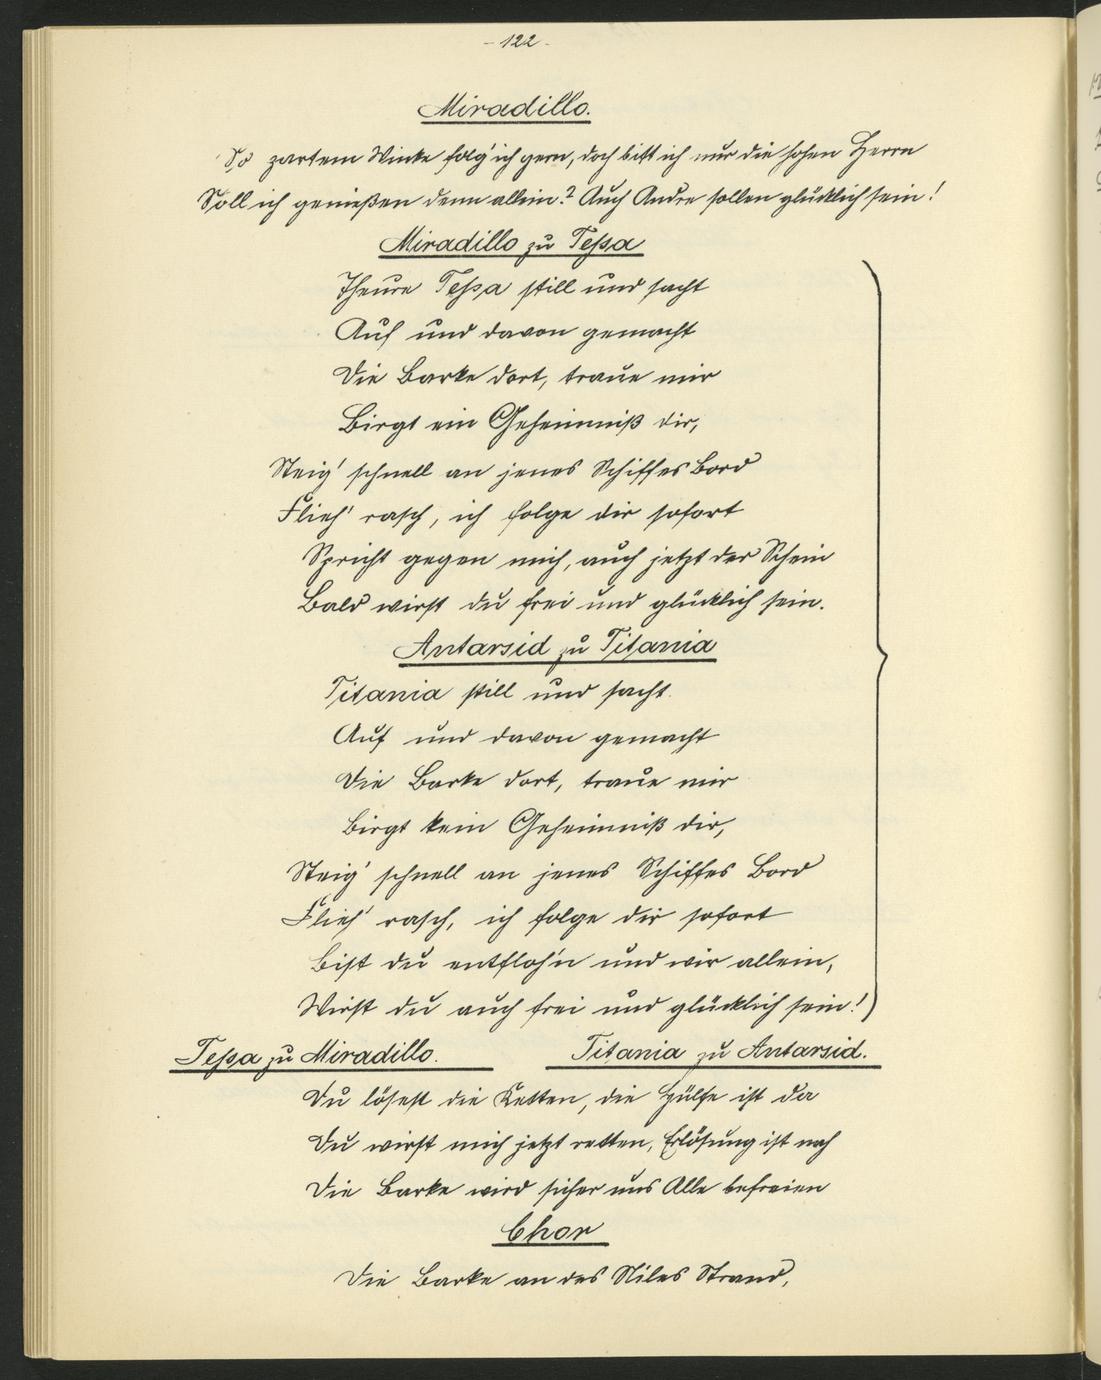 - 122 -
Miradillo.
So zartem Winke folg' ich gern, doch bitt ich nur die hohen Herrn
Soll ich genießen denn allein? Auch Andre sollen glücklich sein!
Miradillo zu Teßa
Theure Teßa still und sacht
Auf und davon gemacht
Die Barke dort, traue mir
Birgt ein Geheimniß dir,
Steig' schnell an jenes Schiffes Bord
Flieh' rasch, ich folge dir sofort
Spricht gegen mich, auch jetzt der Schein
Bald wirst du frei und glücklich sein.
Antarsid zu Titania
Titania still und sacht
Auf und davon gemacht
Die Barke dort, traue mir
Birgt kein Geheimniß dir,
Steig' schnell an jenes Schiffes Bord
Flieh' rasch, ich folge dir sofort
Bist du entfloh'n und wir allein,
Wirst du auch frei und glücklich sein!
Teßa zu Miradillo. Titania zu Antarsid.
Du lösest die Ketten, die Hülfe ist da
Du wirst mich jetzt retten, Erlösung ist nah
Die Barke wird sicher uns Alle befreien
Chor
Die Barke an des Niles Strand,